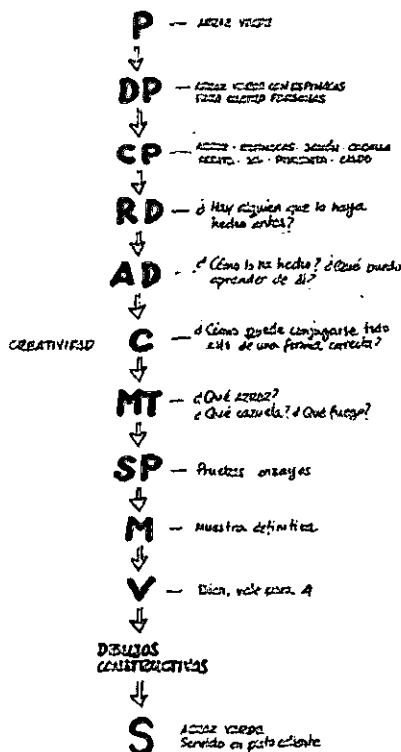 P — ARROZ VERDE
DP — ARROZ VERDE CON ESPINACAS
PARA CUATRO PERSONAS
CP — ARROZ · ESPINACAS · JAMÓN · CEBOLLA
ACEITE · SAL · PIMIENTA · CALDO
RD — ¿Hay alguien que lo haya
hecho antes?
AD — ¿Cómo lo ha hecho? ¿Qué puedo
aprender de él?
CREATIVIDAD C — ¿Cómo puede conjugarse todo
esto de una forma correcta?
MT — ¿Qué arroz?
¿Qué cazuela? ¿Qué fuego?
SP — Pruebas ensayos
M — Muestra definitiva
V — Bien, vale para 4
DIBUJOS
CONSTRUCTIVOS
S ARROZ VERDE
Servido en plato caliente